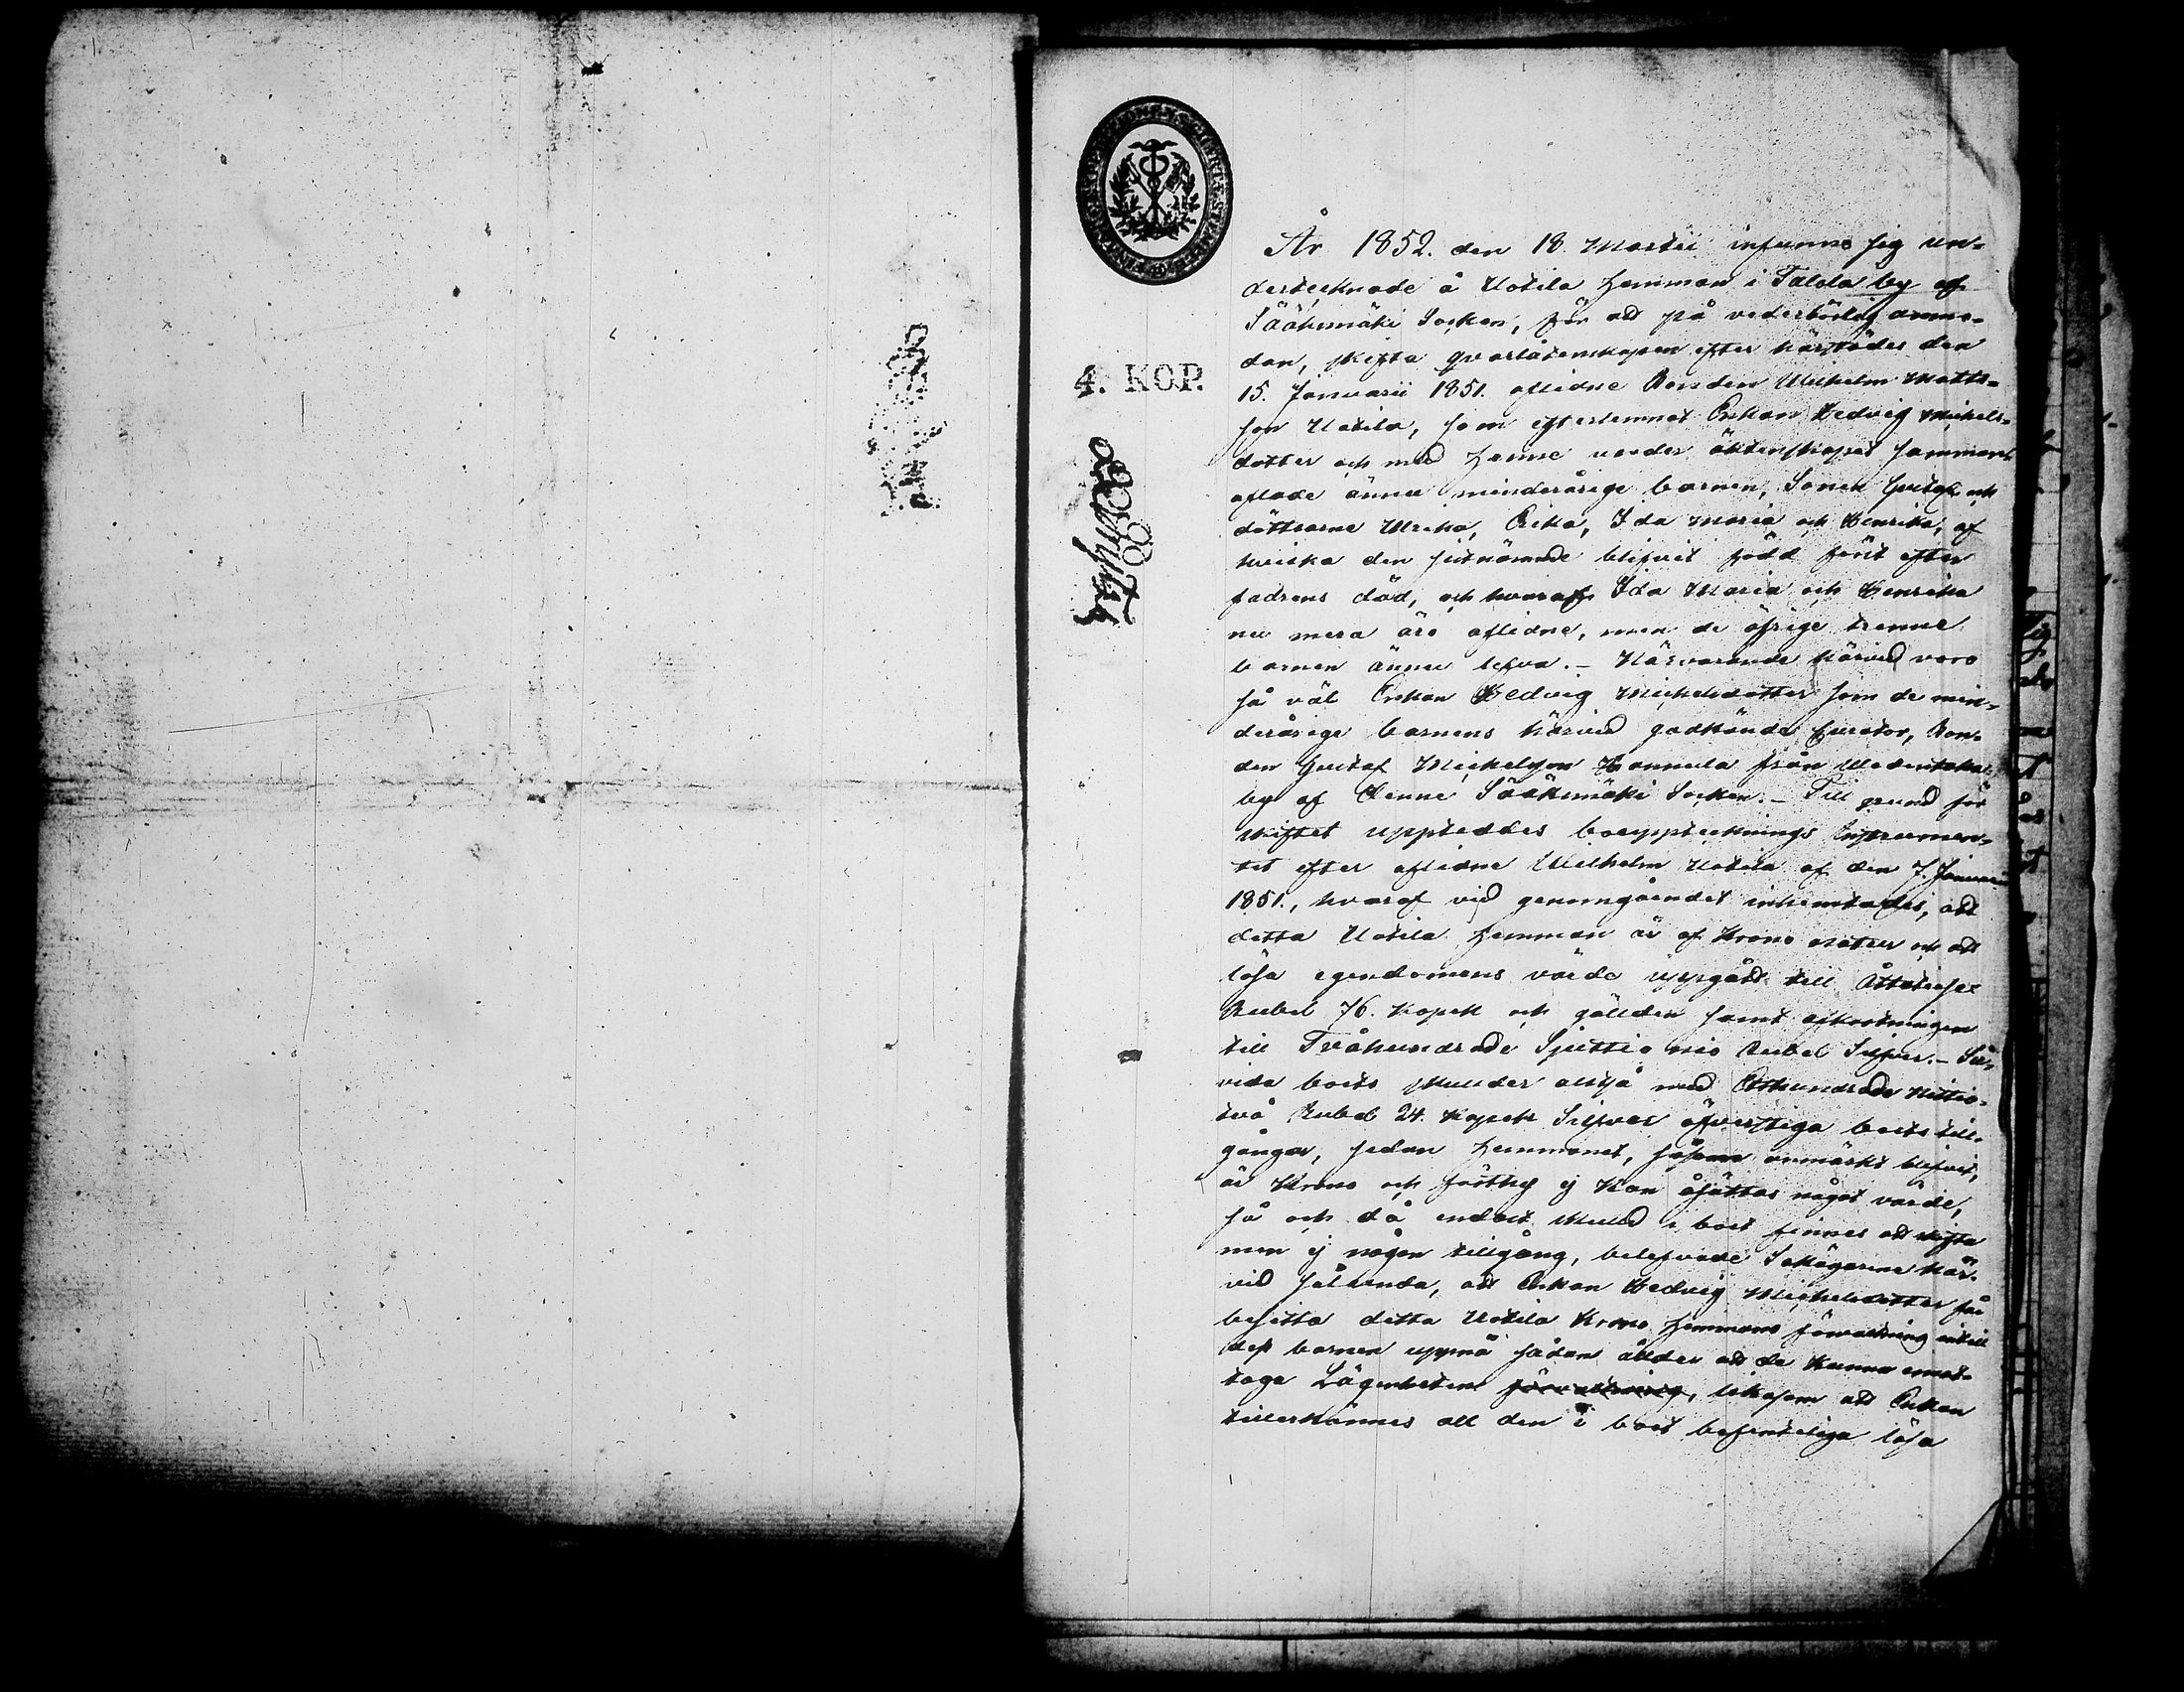 4. KOP.
År 1852. den 18. Martii infunno sig un-
dertecknade å Uotila hemman i Talala by af
Sääksmäki Socken, för att på vederbörlig anmo-
dan, skifta qvarlåtenskapen efter härstädes den
15. Januarii 1851. aflidne Bonden Wilhelm Matts-
son Uotila, som efterlemnat Enkan Hedvig Mickels-
dotter och med henne under äktenskapet samman-
aflade ännu minderårige barnen, Sonen Gustaf och
döttrarne Ulrika, Erika, Ida Maria och Henrika, af
hvilka den sistnämnde blifvit född först efter
fadrens död, och hvaraf Ida Maria och Henrika
nu mera äro aflidne, men de öfrige trenne
barnen ännu lefva. – Närvarande härvid voro
så väl Enkan Hedvig Mickelsdotter som de min-
derårige barnens härvid godkände Curator, Bon-
den Gustaf Mickelsson Hannula från
by af denne Sääksmäki Socken. – Till grund för
skiftet uppteddes bouppteknings Instrumen-
tet efter aflidne Wilhelm Uotila af den 7. Januarii
1851., hvaraf vid genomgåendet inhemtades, att
detta Uotila hemman är af Krono natur och att
lösa egendomens värde uppgått till Åttatiosex
Rubel 76. Kopek och gälden samt afkortningen
till Tvåhundrade Sjuttio nio Rubel Silfver. – Så-
vida boets skulder altså med Etthundrade Nittio-
två Rubel 24. Kopek Silfver öfverstiga boets till-
gångar, sedan hemmanet, såsom anmärkt blifvit,
är Krono och förthy ej kan åsättas något värde,
så och då endast skuld i boet finnes att skifta
men ej någon tillgång, belefvade Sakägarene här-
vid sålunda, att Enkan Hedvig Mickelsdotter får
besitta detta Uotila Krono hemmans förvaltning intill
dess barnen uppnå sådan ålder att de kunna emot-
taga Lägenheten förvaltning, likasom att Enkan
tillerkännes all den i boet befinteliga lösa